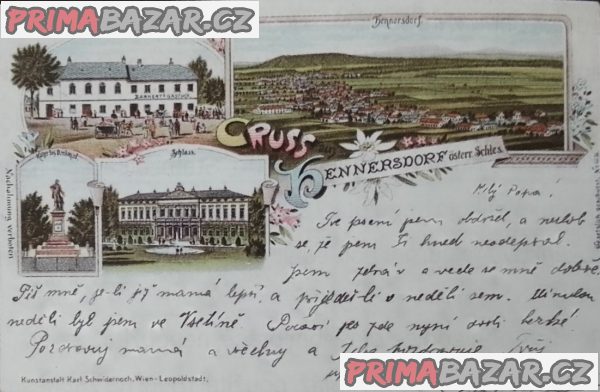 PRIMABAZAR.CZ
Hennersdorf.
GRUSS aus
HENNERSDORF österr. Schles.
Kaiser Jos. Denkmal
Schloss.
Nachahmung verboten
Milý Pepo!
Tvé psaní jsem obdržel, a nezlob
se, že jsem Ti hned neodepsal.
Jsem zdráv a vede se mně dobře.
Piš mně, je-li již mamá lepší, a přijedeš-li v neděli sem. Minulou
neděli byl jsem ve Vsetíně. Počasí je zde nyní dosti hezké
Pozdravuj mamá a všechny a Tebe pozdravuje Tvůj
Kunstanstalt Karl Schwidernoch, Wien-Leopoldstadt.
PRIMABAZAR.CZ